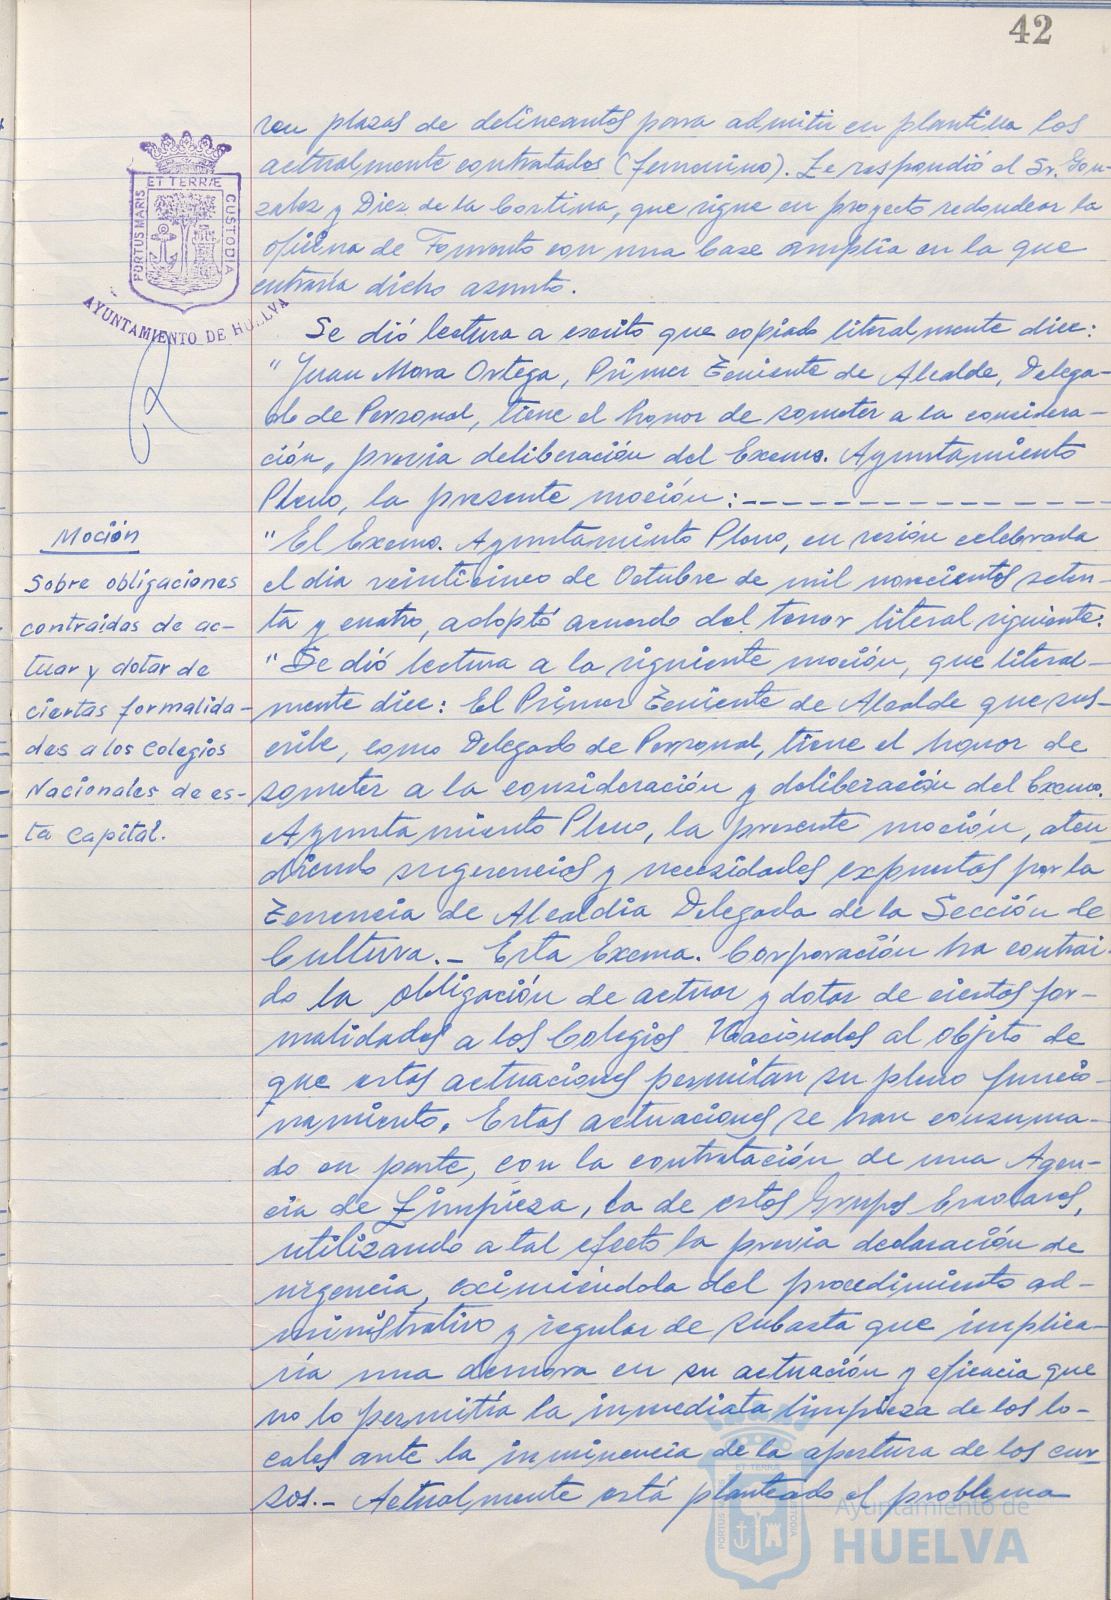 42
ron plazas de delineantes para admitir en plantilla los
actualmente contratados (femenino). Le respondió el Sr. Gon-
zalez y Diez de la Cortina, que sigue en proyecto redondear la
oficina de Fomento con una base amplia en la que
entraría dicho asunto.
Se dió lectura a escrito que copiado literalmente dice:
"Juan Mora Ortega, Primer Teniente de Alcalde, Delega-
do de Personal, tiene el honor de someter a la considera-
ción, previa deliberación del Excmo. Ayuntamiento
Pleno, la presente moción:
"El Excmo. Ayuntamiento Pleno, en sesión celebrada
el dia veinticinco de Octubre de mil novecientos seten-
ta y cuatro, adoptó acuerdo del tenor literal siguiente:
"Se dió lectura a la siguiente moción, que literal-
mente dice: El Primer Teniente de Alcalde que sus-
cribe, como Delegado de Personal, tiene el honor de
someter a la consideración y deliberación del Excmo.
Ayuntamiento Pleno, la presente moción, aten
diendo sugerencias y necesidades expuestas por la
Tenencia de Alcaldía Delegada de la Sección de
Cultura.- Esta Excma. Corporación ha contrai-
do la obligación de actuar y dotar de ciertas for-
malidades a los Colegios Nacionales al objeto de
que estas actuaciones permitan su pleno funcio-
namiento. Estas actuaciones se han consuma-
do en parte, con la contratación de una Agen-
cia de Limpieza, la de estos Grupos Escolares,
utilizando a tal efecto la previa declaración de
urgencia, eximiéndola del procedimiento ad-
ministrativo y regular de subasta que implica-
ría una demora en su actuación y eficacia que
no lo permitía la inmediata limpieza de los lo-
cales ante la inminencia de la apertura de los cur
sos.- Actualmente está planteado el problema
Moción
Sobre obligaciones
contraidas de ac-
tuar y dotar de
ciertas formalida-
des a los Colegios
Nacionales de es-
ta Capital.
ET TERRÆ
PORTUS MARIS
CUSTODIA
AYUNTAMIENTO DE HUELVA
ET TERRÆ
PORTUS MARIS
CUSTODIA
Ayuntamiento de
HUELVA